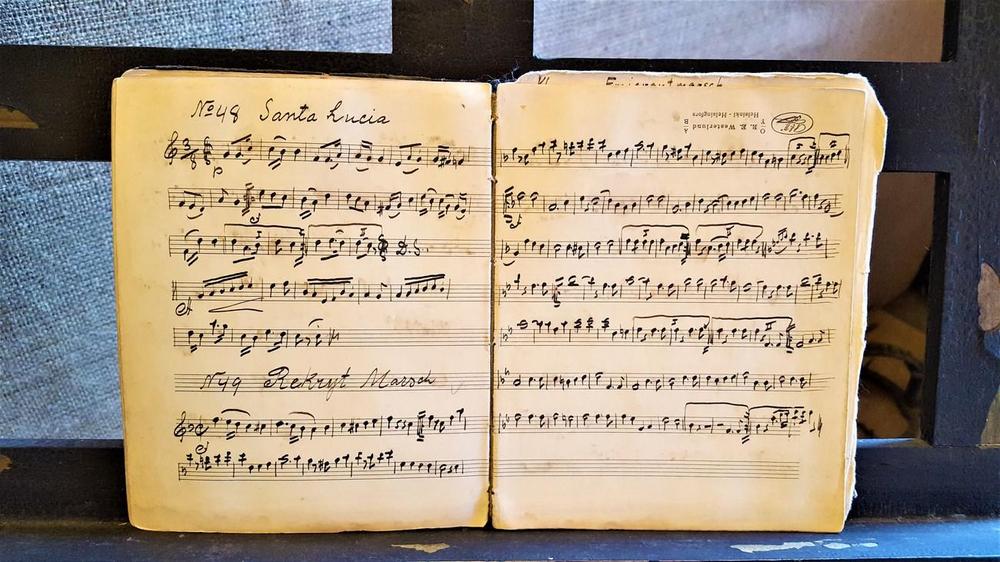 Nº48 Santa Lucia
D.S.
Nº49 Rekryt Marsch
VI
O. Y. R. E. Westerlund A. B.
Helsinki - Helsingfors